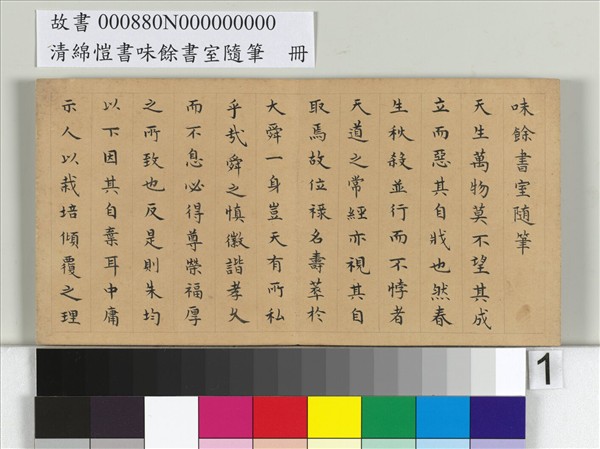 故書 000880N000000000
清綿愷書味餘書室隨筆 冊
味餘書室隨筆
天生萬物莫不望其成
立而惡其自戕也然春
生秋殺並行而不悖者
天道之常經亦視其自
取焉故位祿名壽萃於
大舜一身豈天有所私
乎哉舜之慎徽諧孝久
而不息必得尊榮福厚
之所致也反是則朱均
以下因其自棄耳中庸
示人以栽培傾覆之理
1